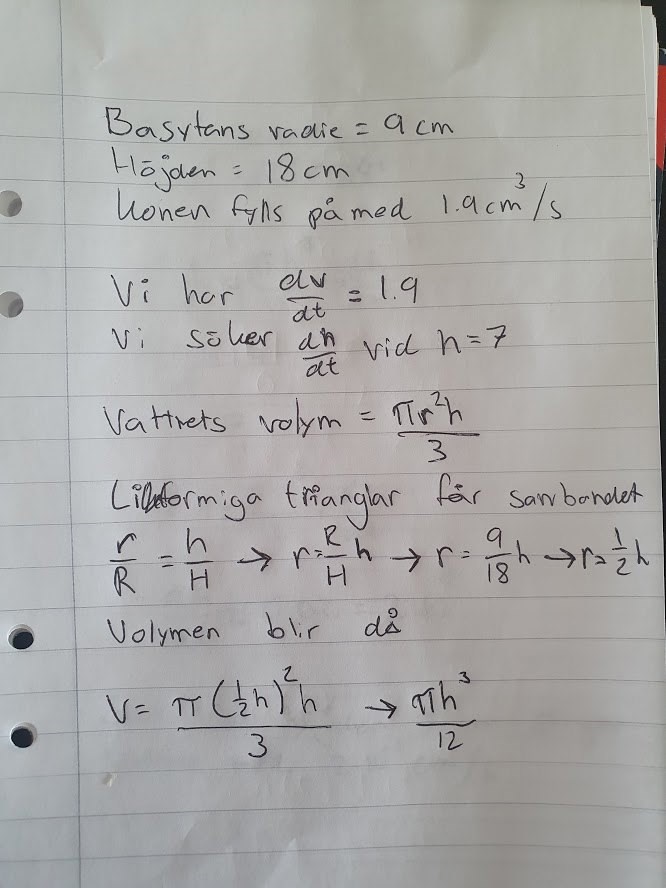 Basytans radie = 9 cm
Höjden = 18 cm
Konen fylls på med 1.9 cm³/s
Vi har dv/dt = 1.9
Vi söker dh/dt vid h = 7
Vattnets volym = πr²h/3
Likformiga trianglar får sambandet
r/R = h/H → r = R/H h → r = 9/18 h → r = 1/2 h
Volymen blir då
V = π(1/2 h)² h/3 → πh³/12